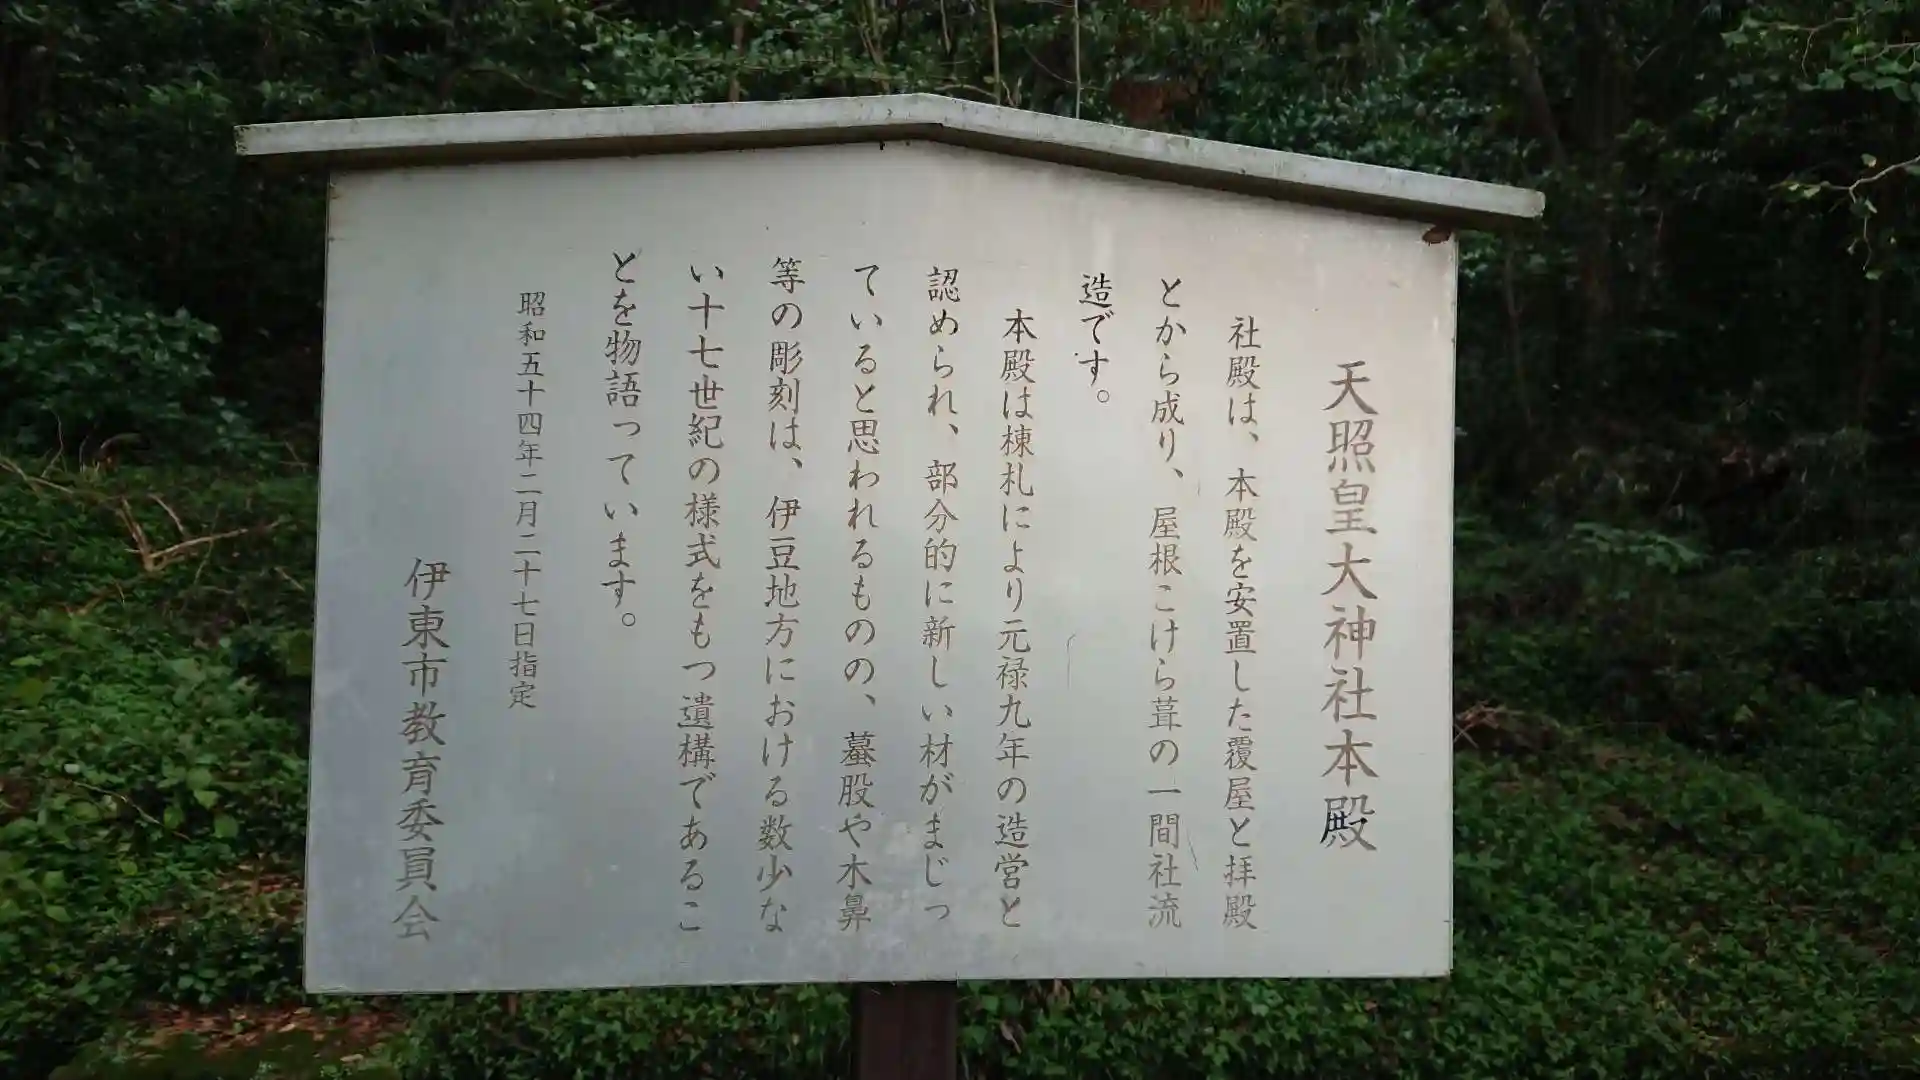 天照皇大神社本殿
社殿は、本殿を安置した覆屋と拝殿
とから成り、屋根こけら葺の一間社流
造です。
本殿は棟札により元禄九年の造営と
認められ、部分的に新しい材がまじっ
ていると思われるものの、蟇股や木鼻
等の彫刻は、伊豆地方における数少な
い十七世紀の様式をもつ遺構であるこ
とを物語っています。
昭和五十四年二月二十七日指定
伊東市教育委員会